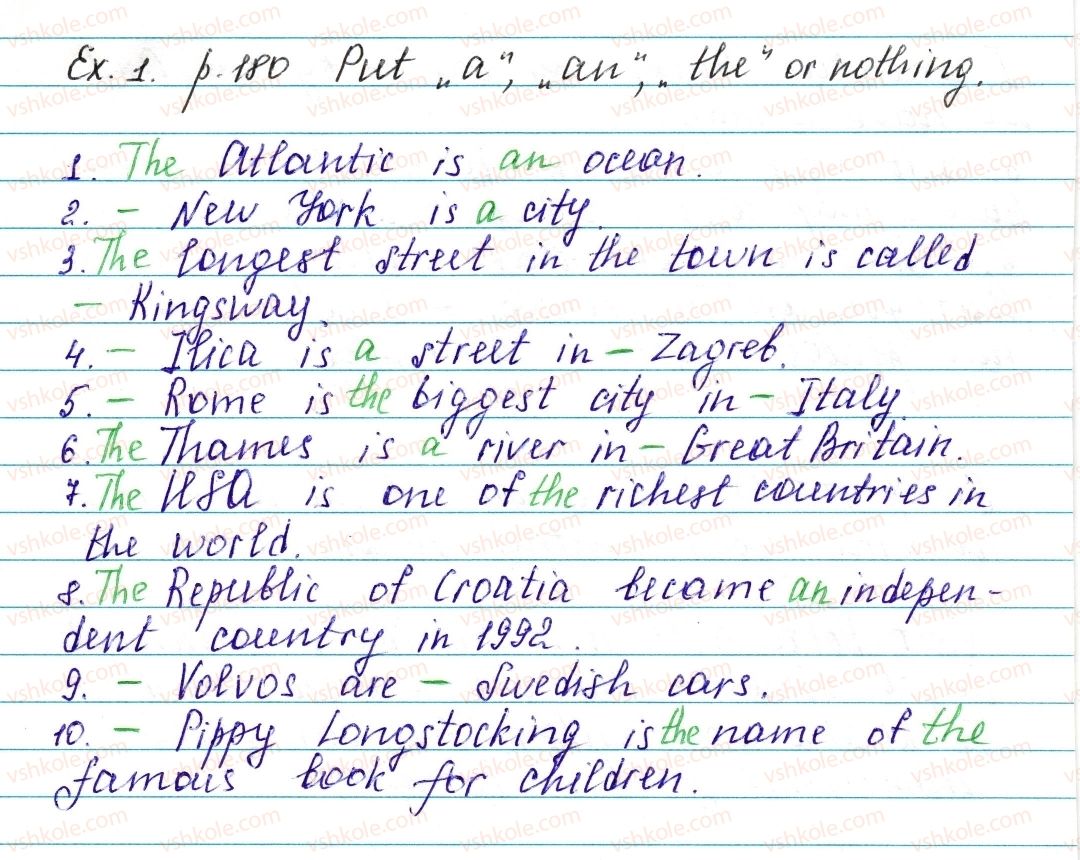 Ex. 1. p. 180 Put „a", „an", „the" or nothing.
1. The Atlantic is an ocean.
2. – New York is a city.
3. The longest street in the town is called
– Kingsway.
4. – Ilica is a street in – Zagreb.
5. – Rome is the biggest city in – Italy.
6. The Thames is a river in – Great Britain.
7. The USA is one of the richest countries in
the world.
8. The Republic of Croatia became an indepen-
dent country in 1992.
9. – Volvos are – Swedish cars.
10. – Pippy Longstocking is the name of the
famous book for children.
vshkole.com